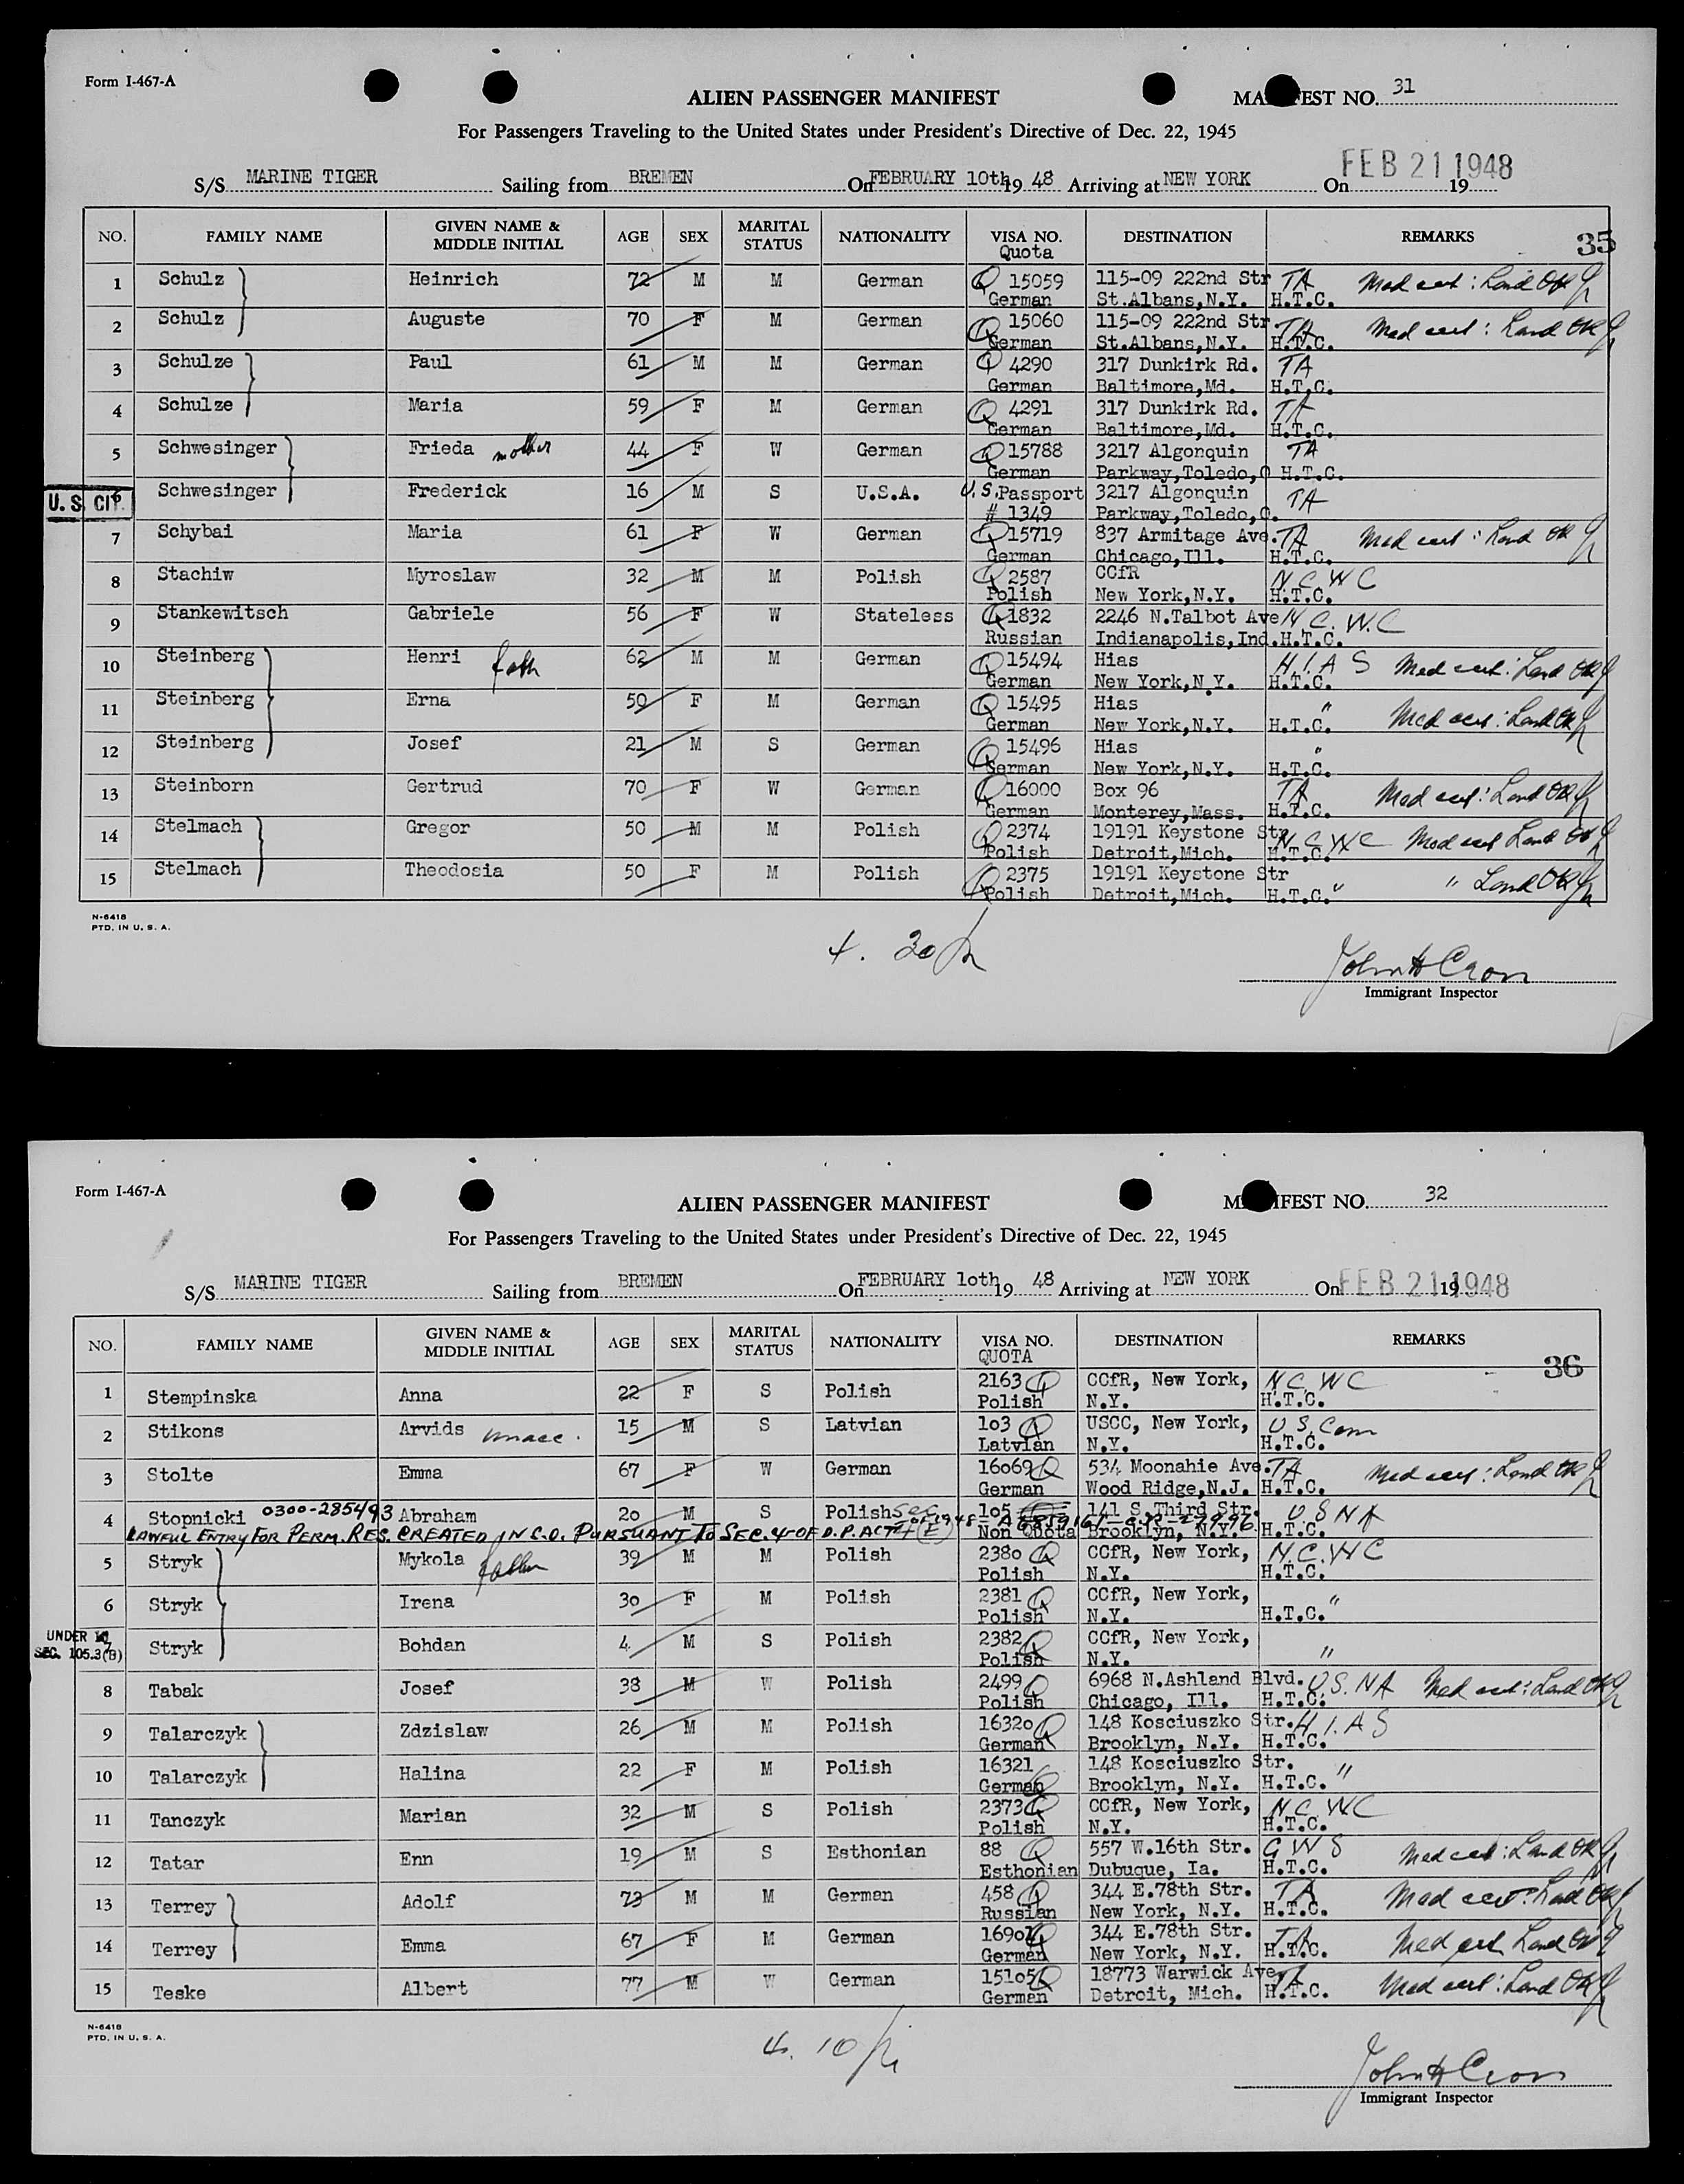 Form I-467-A
ALIEN PASSENGER MANIFEST
MA FEST NO. 31
For Passengers Traveling to the United States under President's Directive of Dec. 22, 1945
S/S MARINE TIGER Sailing from BREMEN On FEBRUARY 10th 19 48 Arriving at NEW YORK On FEB 21 1948 19
NO. FAMILY NAME GIVEN NAME & MIDDLE INITIAL AGE SEX MARITAL STATUS NATIONALITY VISA NO. Quota DESTINATION REMARKS 35
1 Schulz Heinrich 72 M M German Q 15059 115-09 222nd Str TA Med cert: Land OK
German St.Albans,N.Y. H.T.C.
2 Schulz Auguste 70 F M German Q 15060 115-09 222nd Str. TA Med cert: Land OK
German St.Albans,N.Y. H.T.C.
3 Schulze Paul 61 M M German Q 4290 317 Dunkirk Rd. TA
German Baltimore,Md. H.T.C.
4 Schulze Maria 59 F M German Q 4291 317 Dunkirk Rd. TA
German Baltimore,Md. H.T.C.
5 Schwesinger Frieda mother 44 F W German Q 15788 3217 Algonquin TA
German Parkway,Toledo,O H.T.C.
U.S. CIT. 6 Schwesinger Frederick 16 M S U.S.A. U.S.Passport 3217 Algonquin TA
# 1349 Parkway,Toledo,O.
7 Schybai Maria 61 F W German Q 15719 837 Armitage Ave. TA Med cert: Land OK
German Chicago,Ill. H.T.C.
8 Stachiw Myroslaw 32 M M Polish Q 2587 CCfR N.C.W.C
Polish New York,N.Y. H.T.C.
9 Stankewitsch Gabriele 56 F W Stateless Q 1832 2246 N.Talbot Ave N.C.W.C
Russian Indianapolis,Ind. H.T.C.
10 Steinberg Henri fath 62 M M German Q 15494 Hias H.I.A S Med cert: Land OK
German New York,N.Y. H.T.C.
11 Steinberg Erna 50 F M German Q 15495 Hias " Med cert: Land OK
German New York,N.Y. H.T.C.
12 Steinberg Josef 21 M S German Q 15496 Hias "
German New York,N.Y. H.T.C.
13 Steinborn Gertrud 70 F W German Q 16000 Box 96 TA Med cert: Land OK
German Monterey,Mass. H.T.C.
14 Stelmach Gregor 50 M M Polish Q 2374 19191 Keystone Str N C W C Med cert Land OK
Polish Detroit,Mich. H.T.C.
15 Stelmach Theodosia 50 F M Polish Q 2375 19191 Keystone Str " Land OK
Polish Detroit,Mich. H.T.C. "
N-6418
PTD. IN U. S. A.
4. 30
John H Cron
Immigrant Inspector
Form I-467-A
ALIEN PASSENGER MANIFEST
M IFEST NO. 32
For Passengers Traveling to the United States under President's Directive of Dec. 22, 1945
S/S MARINE TIGER Sailing from BREMEN On FEBRUARY 1oth 19 48 Arriving at NEW YORK On FEB 21 1948 19
NO. FAMILY NAME GIVEN NAME & MIDDLE INITIAL AGE SEX MARITAL STATUS NATIONALITY VISA NO. QUOTA DESTINATION REMARKS 36
1 Stempinska Anna 22 F S Polish 2163 Q CCfR, New York, N C W C
Polish N.Y. H.T.C.
2 Stikons Arvids unacc. 15 M S Latvian 1o3 Q USCC, New York, U S. Com
Latvian N.Y. H.T.C.
3 Stolte Emma 67 F W German 16o69 Q 534 Moonahie Ave. TA Med cert: Land OK
German Wood Ridge,N.J. H.T.C.
4 Stopnicki 0300-285493 Abraham 2o M S Polish 1o5 141 S.Third Str. U S N A
LAWFUL ENTRY FOR PERM. RES. CREATED IN C.O. PURSUANT TO SEC. 4 OF D.P. ACT OF 1948 Non Quota Brooklyn, N.Y. H.T.C.
5 Stryk Mykola father 39 M M Polish 238o Q CCfR, New York, N.C.W C
Polish N.Y. H.T.C.
6 Stryk Irena 3o F M Polish 2381 Q CCfR, New York, "
Polish N.Y. H.T.C.
UNDER 14
SEC. 105.3(B) 7 Stryk Bohdan 4 M S Polish 2382 Q CCfR, New York,
Polish N.Y. "
8 Tabak Josef 38 M W Polish 2499 Q 6968 N.Ashland Blvd. U.S. NA Med cert: Land OK
Polish Chicago, Ill. H.T.C.
9 Talarczyk Zdzislaw 26 M M Polish 1632o Q 148 Kosciuszko Str. H.I.A S
German Brooklyn, N.Y. H.T.C.
10 Talarczyk Halina 22 F M Polish 16321 148 Kosciuszko Str. "
German Q Brooklyn, N.Y. H.T.C.
11 Tanczyk Marian 32 M S Polish 2373 Q CCfR, New York, N.C.W.C
Polish N.Y. H.T.C.
12 Tatar Enn 19 M S Esthonian 88 Q 557 W.16th Str. G W S Med cert: Land OK
Esthonian Dubuque, Ia. H.T.C.
13 Terrey Adolf 73 M M German 458 Q 344 E.78th Str. TA Med cert: Land OK
Russian New York, N.Y. H.T.C.
14 Terrey Emma 67 F M German 169o1 Q 344 E.78th Str. TA Med cert Land OK
German New York, N.Y. H.T.C.
15 Teske Albert 77 M W German 151o5 Q 18773 Warwick Ave. TA Med cert: Land OK
German Detroit, Mich. H.T.C.
N-6418
PTD. IN U. S. A.
4. 10
John H Cron
Immigrant Inspector